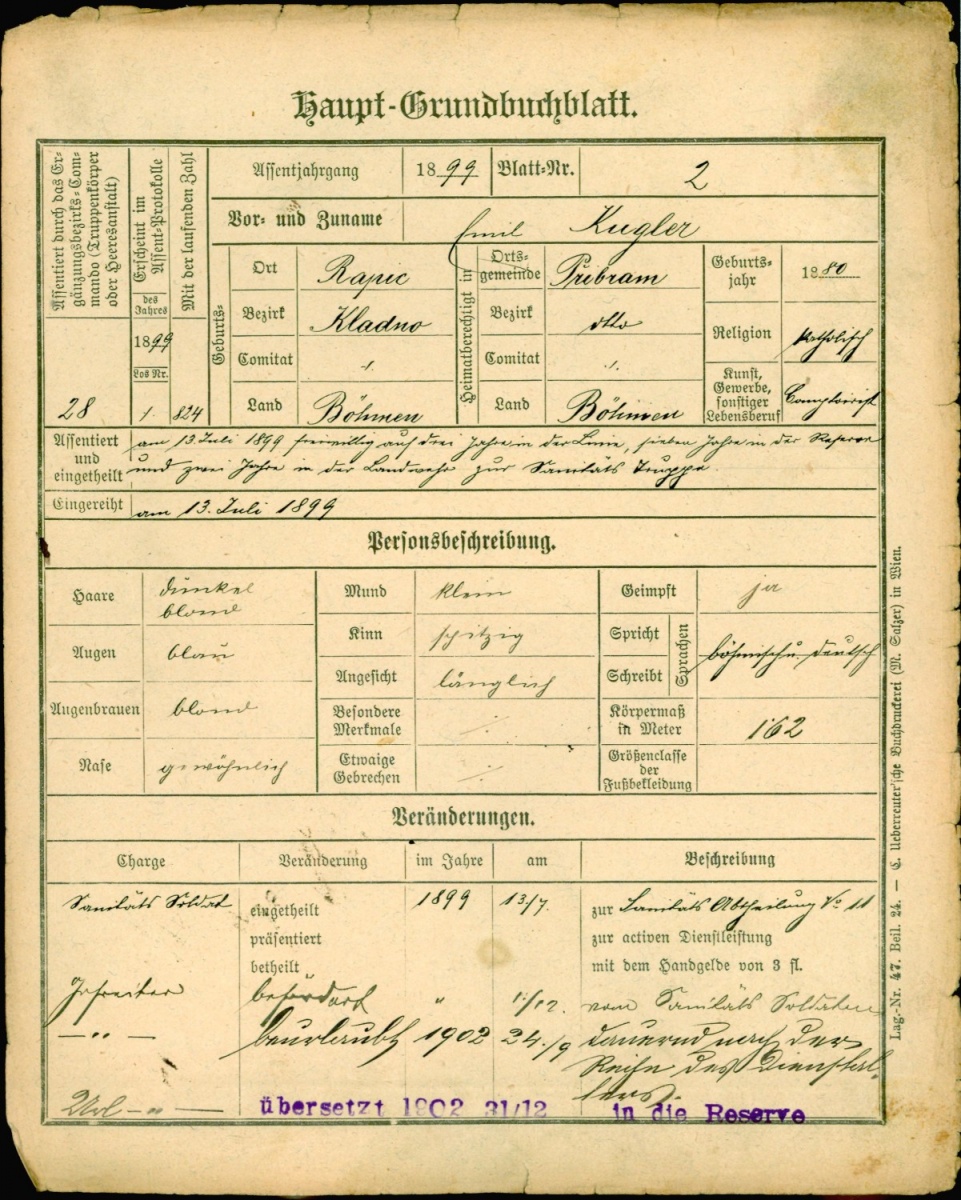 Haupt-Grundbuchblatt.
Assentiert durch das Er-
gänzungsbezirks-Com-
mando (Truppenkörper
oder Heeresanstalt)
28
Erscheint im
Assent-Protokolle
des
Jahres
1899
Los Nr.
1.
Mit der laufenden Zahl
824
Assentjahrgang 1899 Blatt-Nr. 2
Vor- und Zuname Emil Kugler
Geburts-
Ort Rapic
Bezirk Kladno
Comitat ./.
Land Böhmen
Heimatberechtigt in
Orts-
gemeinde Přibram
Bezirk dtto
Comitat ./.
Land Böhmen
Geburts-
jahr 1880
Religion katholisch
Kunst,
Gewerbe,
sonstiger
Lebensberuf Comptoirist
Assentiert
und
eingetheilt
am 13. Juli 1899 freiwillig auf drei Jahre in der Linie, sieben Jahre in der Reserve
und zwei Jahre in der Landwehr zur Sanitäts Truppe.
Eingereiht am 13. Juli 1899
Personsbeschreibung.
Haare dunkel
blond
Augen blau
Augenbrauen blond
Nase gewöhnlich
Mund klein
Kinn spitzig
Angesicht länglich
Besondere
Merkmale ./.
Etwaige
Gebrechen ./.
Geimpft ja
Spricht
Schreibt
Sprachen
böhmisch u. deutsch
Körpermaß
in Meter 1·62
Größenclasse
der
Fußbekleidung
Veränderungen.
Charge Veränderung im Jahre am Beschreibung
Sanitäts Soldat eingetheilt 1899 13/7. zur Sanitäts Abtheilung No 11
präsentiert zur activen Dienstleistung
betheilt mit dem Handgelde von 3 fl.
Gefreiter befördert " 1./12. vom Sanitäts Soldaten
— " — beurlaubt 1902 24./9 dauernd nach der
Reihe des Dienstal-
ters.
— " — übersetzt 1902 31/12 in die Reserve
Lag.-Nr. 47. Beil. 24. — C. Ueberreuter'sche Buchdruckerei (M. Salzer) in Wien.